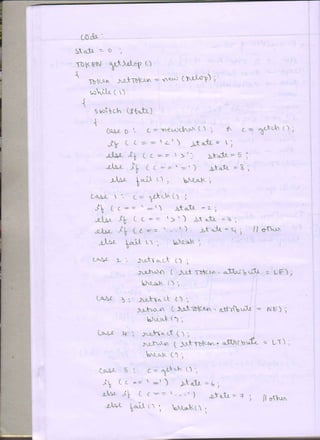 Code :
state = 0 ;
TOKEN getrelop ()
{
Token retToken = new (Relop);
while (1)
{
switch (state)
{
case 0 : c = nextchar(); c = getch ();
if ( c == '<' ) state = 1;
else if ( c == '>' ) state = 5 ;
else if ( c == '=' ) state = 8 ;
else fail () ; break ;
case 1 : c = getch () ;
if ( c == '=' ) state = 2 ;
else if ( c == '>' ) state = 3 ;
else if ( c == '..' ) state = 4 ; // other
else fail () ; break ;
case 2 : retract () ;
return ( ret Token . attribute = LE ) ;
break () ;
case 3 : retract () ;
return ( ret Token . attribute = NE ) ;
break () ;
case 4 : retract () ;
return ( ret Token . attribute = LT ) ;
break () ;
case 5 : c = getch () ;
if ( c == '=' ) state = 6 ;
else if ( c == '..' ) state = 7 ; // other
else fail () ; break () ;